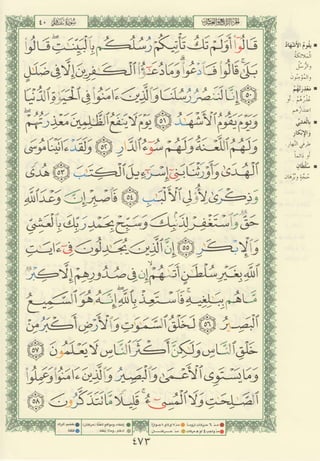 سورة غافر ٤٠
الجزء الرابع والعشرون
قَالُوٓا۟ أَوَلَمْ تَكُ تَأْتِيكُمْ رُسُلُكُم بِٱلْبَيِّنَـٰتِ ۖ قَالُوا۟
بَلَىٰ ۚ قَالُوا۟ فَٱدْعُوا۟ ۗ وَمَا دُعَـٰٓؤُا۟ ٱلْكَـٰفِرِينَ إِلَّا فِى ضَلَـٰلٍ
٥٠ إِنَّا لَنَنصُرُ رُسُلَنَا وَٱلَّذِينَ ءَامَنُوا۟ فِى ٱلْحَيَوٰةِ ٱلدُّنْيَا
وَيَوْمَ يَقُومُ ٱلْأَشْهَـٰدُ ٥١ يَوْمَ لَا يَنفَعُ ٱلظَّـٰلِمِينَ مَعْذِرَتُهُمْ ۖ
وَلَهُمُ ٱللَّعْنَةُ وَلَهُمْ سُوٓءُ ٱلدَّارِ ٥٢ وَلَقَدْ ءَاتَيْنَا مُوسَى
ٱلْهُدَىٰ وَأَوْرَثْنَا بَنِىٓ إِسْرَٰٓءِيلَ ٱلْكِتَـٰبَ ٥٣ هُدًى
وَذِكْرَىٰ لِأُو۟لِى ٱلْأَلْبَـٰبِ ٥٤ فَٱصْبِرْ إِنَّ وَعْدَ ٱللَّهِ
حَقٌّ وَٱسْتَغْفِرْ لِذَنۢبِكَ وَسَبِّحْ بِحَمْدِ رَبِّكَ بِٱلْعَشِىِّ
وَٱلْإِبْكَـٰرِ ٥٥ إِنَّ ٱلَّذِينَ يُجَـٰدِلُونَ فِىٓ ءَايَـٰتِ
ٱللَّهِ بِغَيْرِ سُلْطَـٰنٍ أَتَىٰهُمْ ۙ إِن فِى صُدُورِهِمْ إِلَّا كِبْرٌ
مَّا هُم بِبَـٰلِغِيهِ ۚ فَٱسْتَعِذْ بِٱللَّهِ ۖ إِنَّهُۥ هُوَ ٱلسَّمِيعُ
ٱلْبَصِيرُ ٥٦ لَخَلْقُ ٱلسَّمَـٰوَٰتِ وَٱلْأَرْضِ أَكْبَرُ مِنْ
خَلْقِ ٱلنَّاسِ وَلَـٰكِنَّ أَكْثَرَ ٱلنَّاسِ لَا يَعْلَمُونَ ٥٧
وَمَا يَسْتَوِى ٱلْأَعْمَىٰ وَٱلْبَصِيرُ وَٱلَّذِينَ ءَامَنُوا۟ وَعَمِلُوا۟
ٱلصَّـٰلِحَـٰتِ وَلَا ٱلْمُسِىٓءُ ۚ قَلِيلًا مَّا تَتَذَكَّرُونَ ٥٨
يقوم الأشهاد
معذرتهم
بالعشي
والإبكار
سلطان
٤٧٣